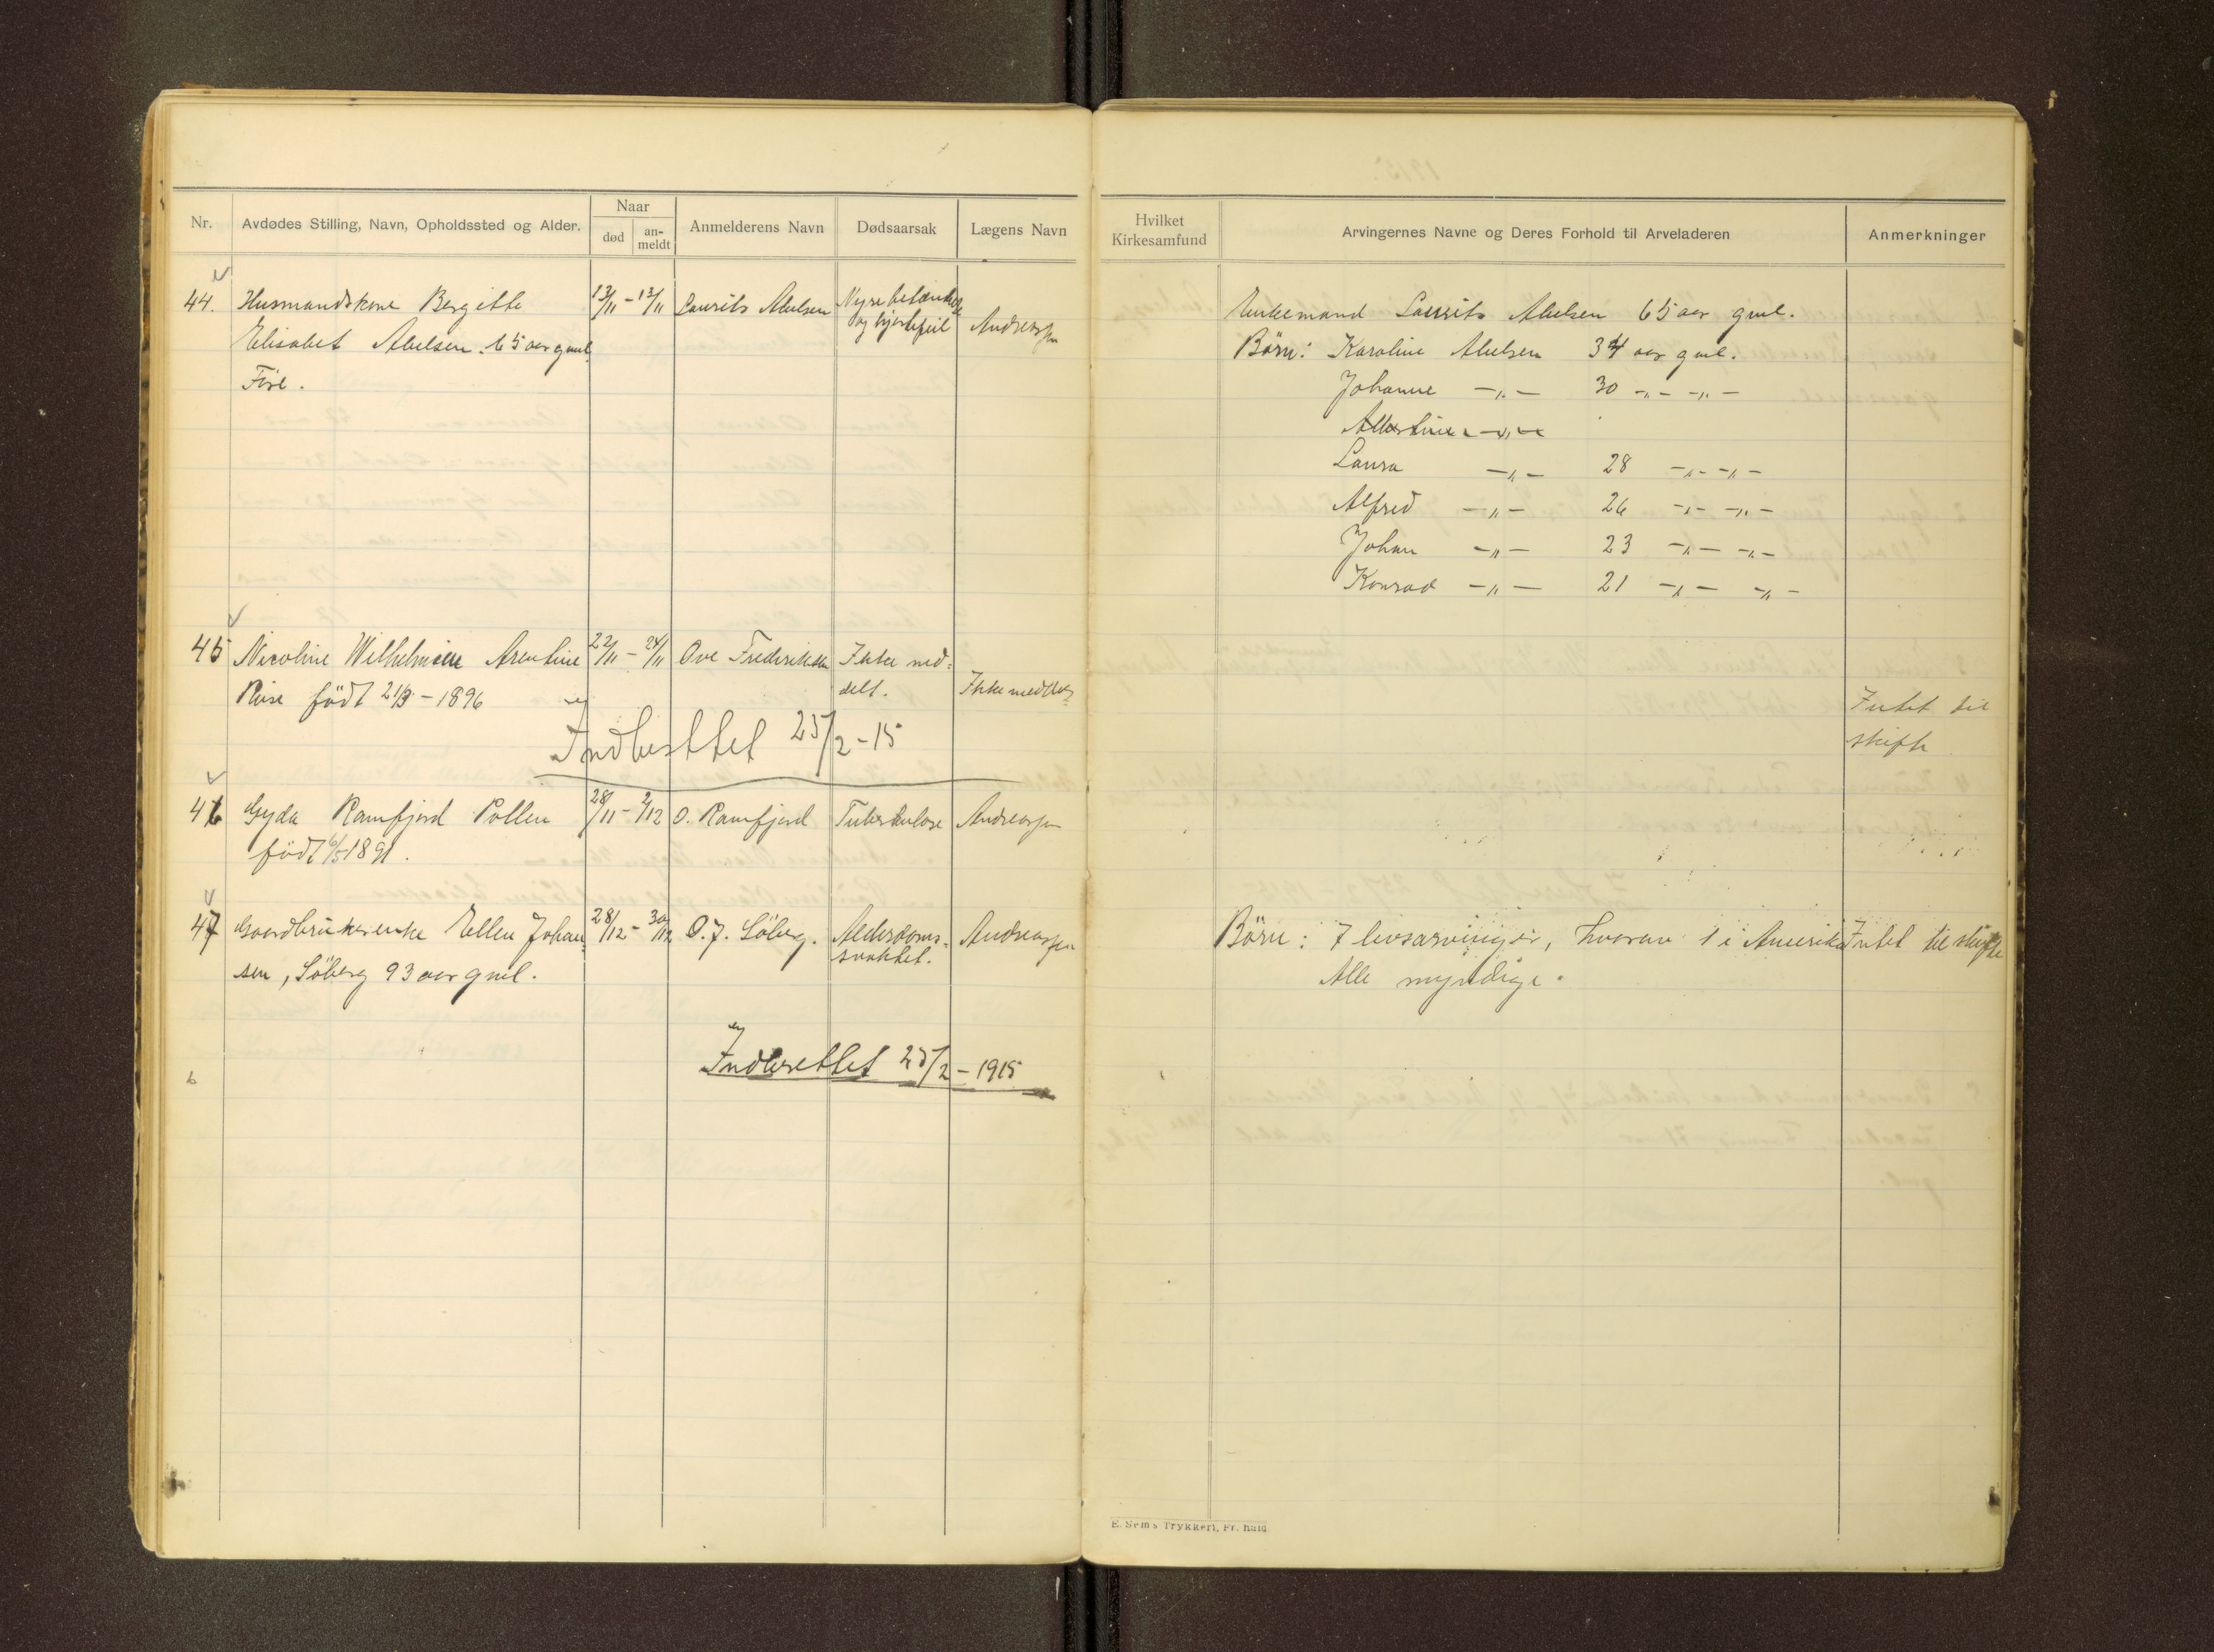 Nr. Avdødes Stilling, Navn, Opholdssted og Alder. Naar død an-meldt Anmelderens Navn Dødsaarsak Lægens Navn
Hvilket Kirkesamfund Arvingernes Navne og Deres Forhold til Arveladeren Anmerkninger
44. Husmandskone Bergitte 13/11 - 13/11 Laurits Abelsen Nyrebetændelse
og hjertefeil Andreassen
Elisabet Abelsen. 65 aar gml.
Fire.
Enkemand Laurits Abelsen 65 aar gml.
Börn: Karoline Abelsen 34 aar gml.
Johanne -"- 30 -"- -"-
Albertine -"-
Laura -"- 28 -"- -"-
Alfred -"- 26 -"- -"-
Johan -"- 23 -"- -"-
Konrad -"- 21 -"- -"-
45 Nicoline Wilhelmine Arentine 22/11 - 24/11 Ove Frederiksen Ikke med-
delt. Ikke meddelt
födt 21/3 - 1896
Intet til
skifte
Indberettet 25/2 - 15
46 Gyda Ramfjord Pollen 28/11 - 2/12 O. Ramfjord Tuberkulose Andreassen
födt 6/5 1891.
47 Gaardbrukerenke Ellen Johan- 28/12 - 30/12 O. J. Söberg. Alderdoms-
svakhet. Andreassen
sen, Söberg 93 aar gml.
Börn: 7 livsarvinger, hvorav 1 i Amerika Intet til skifte
Alle myndige.
Indberettet 25/2 - 1915
E. Sem's Trykkeri, Fr.hald.